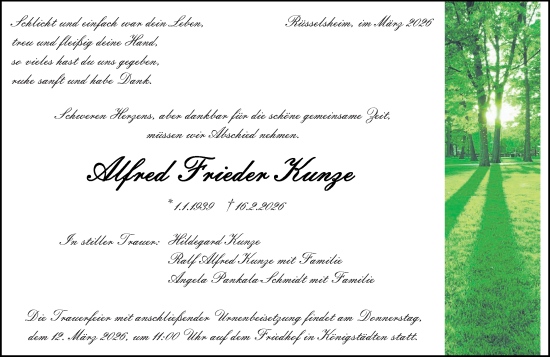 Schlicht und einfach war dein Leben,
treu und fleißig deine Hand,
so vieles hast du uns gegeben,
ruhe sanft und habe Dank.
Rüsselsheim, im März 2026
Schweren Herzens, aber dankbar für die schöne gemeinsame Zeit,
müssen wir Abschied nehmen.
Alfred Frieder Kunze
* 1.1.1939 † 16.2.2026
In stiller Trauer: Hildegard Kunze
Ralf Alfred Kunze mit Familie
Angela Pankala-Schmidt mit Familie
Die Trauerfeier mit anschließender Urnenbeisetzung findet am Donnerstag,
dem 12. März 2026, um 11:00 Uhr auf dem Friedhof in Königstädten statt.